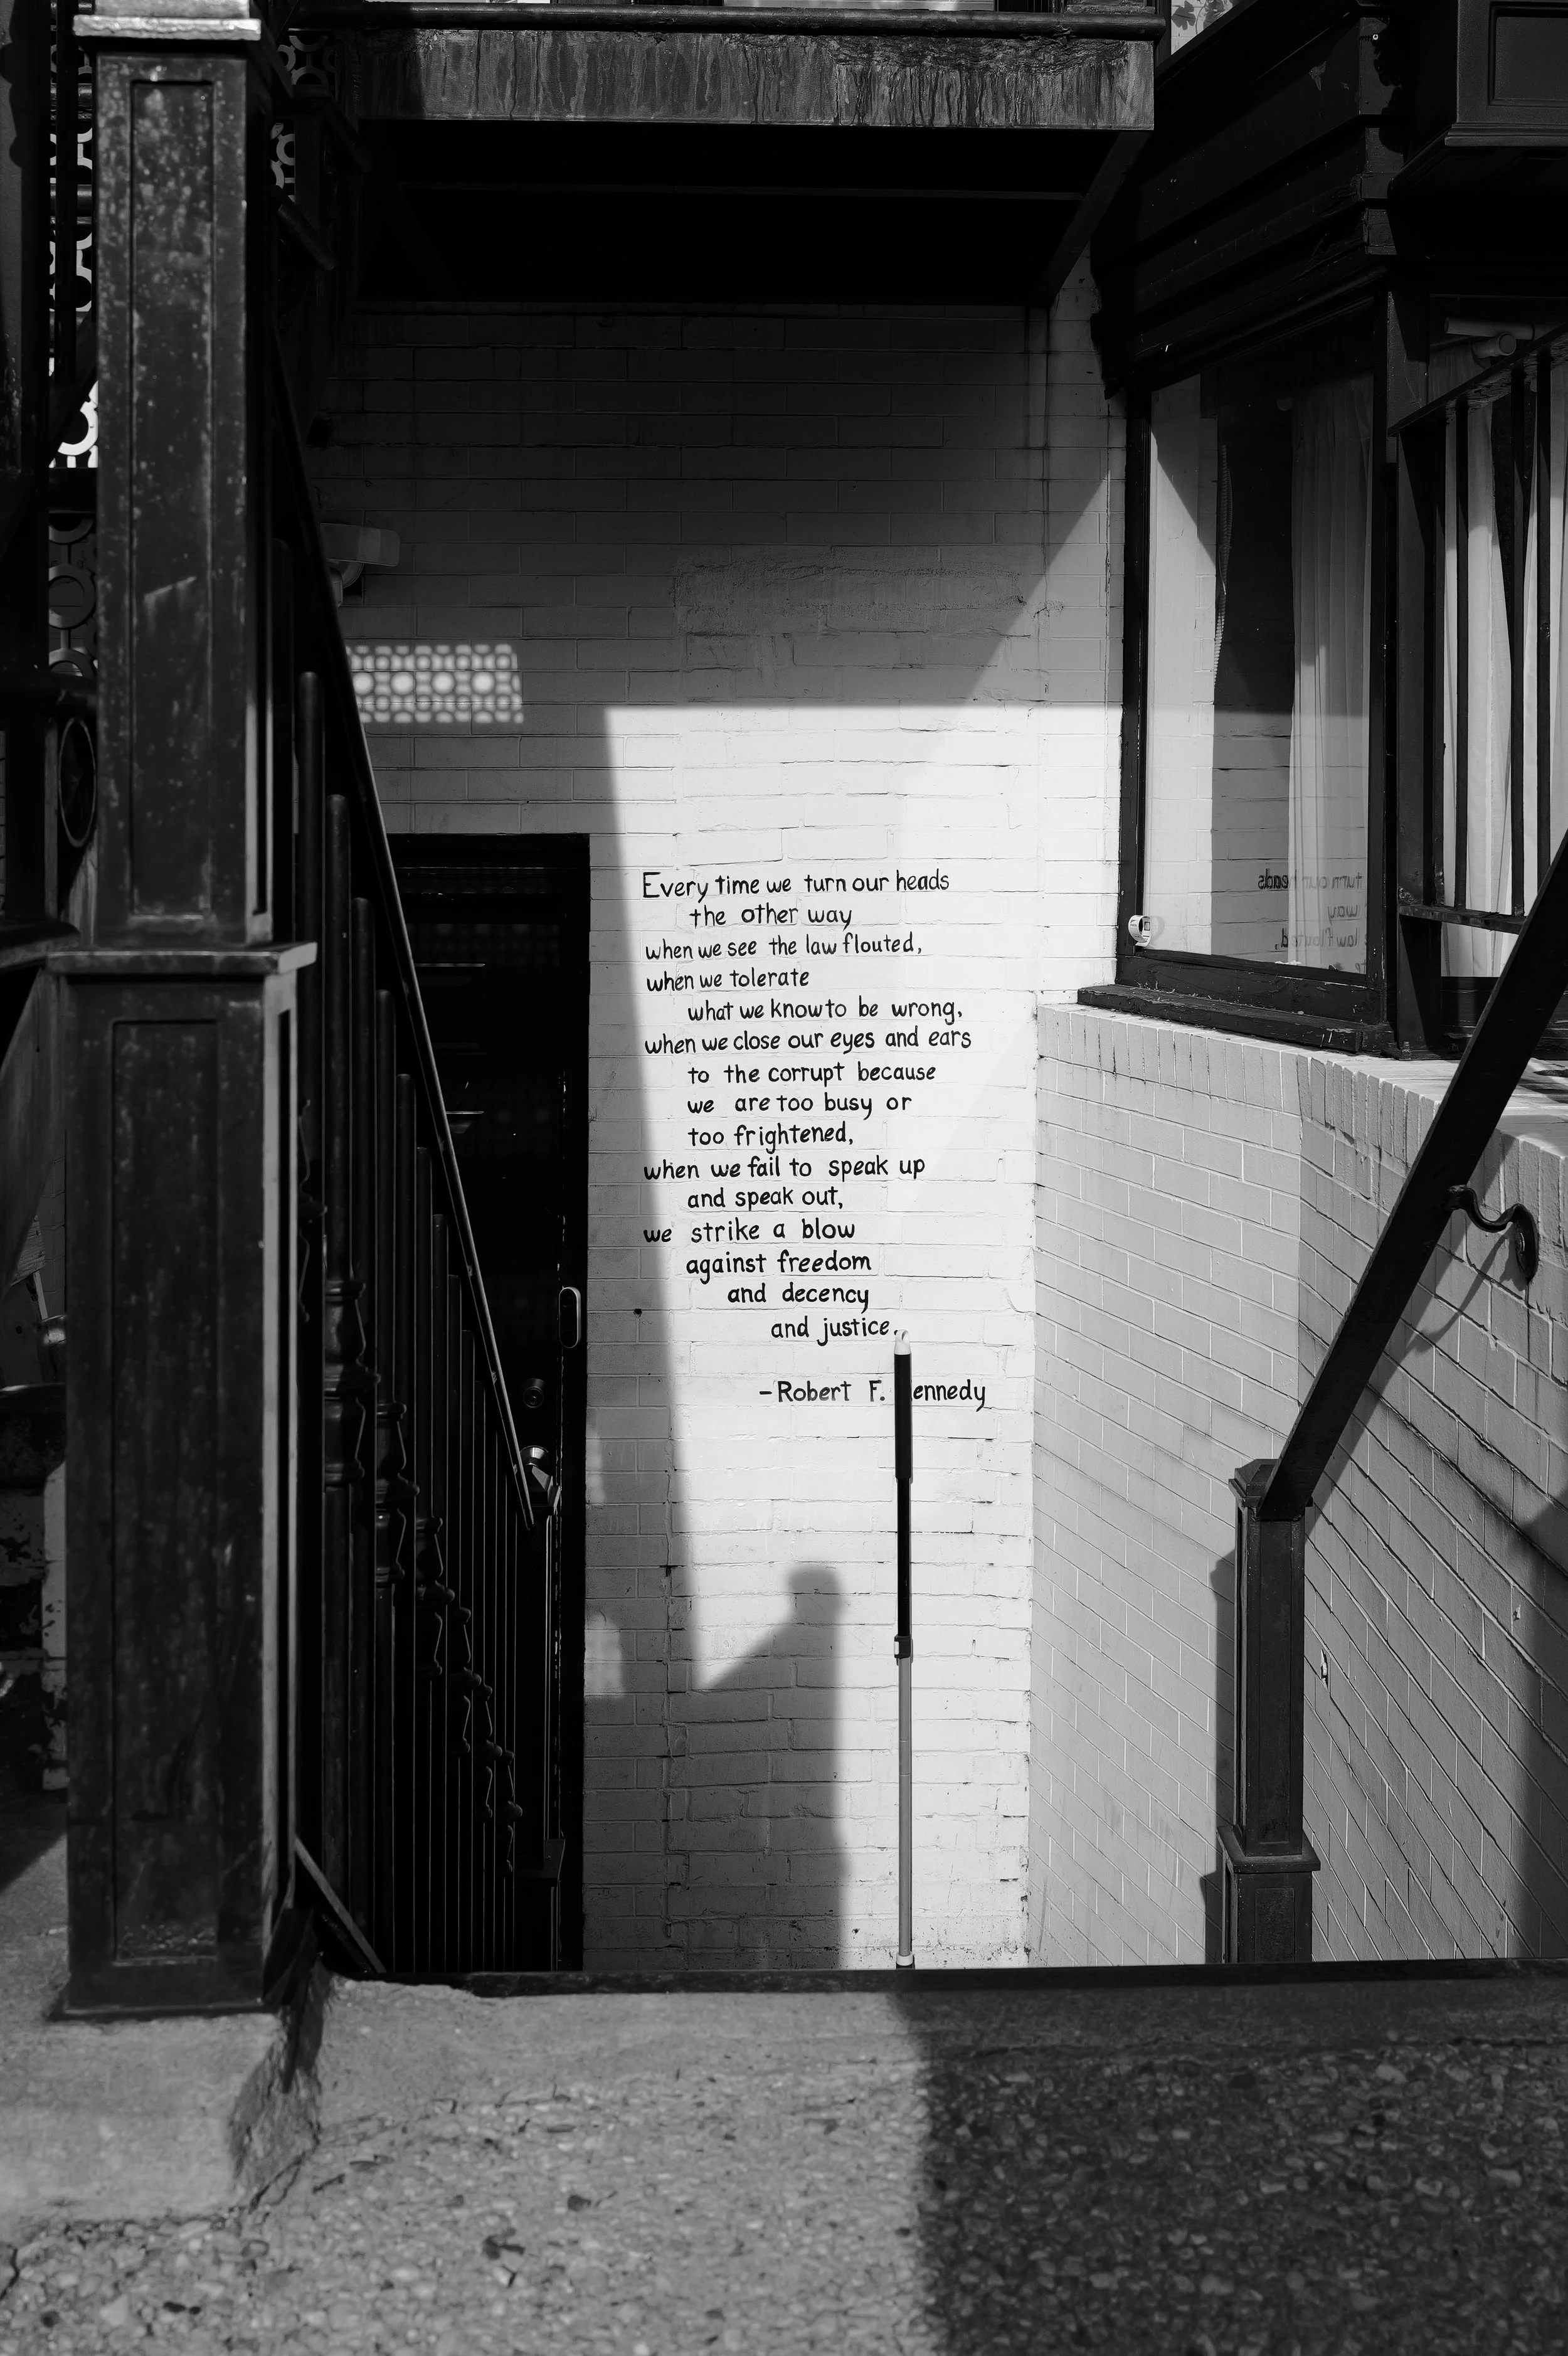 Every time we turn our heads
the other way
when we see the law flouted,
when we tolerate
what we know to be wrong,
when we close our eyes and ears
to the corrupt because
we are too busy or
too frightened,
when we fail to speak up
and speak out,
we strike a blow
against freedom
and decency
and justice.
-Robert F. ennedy